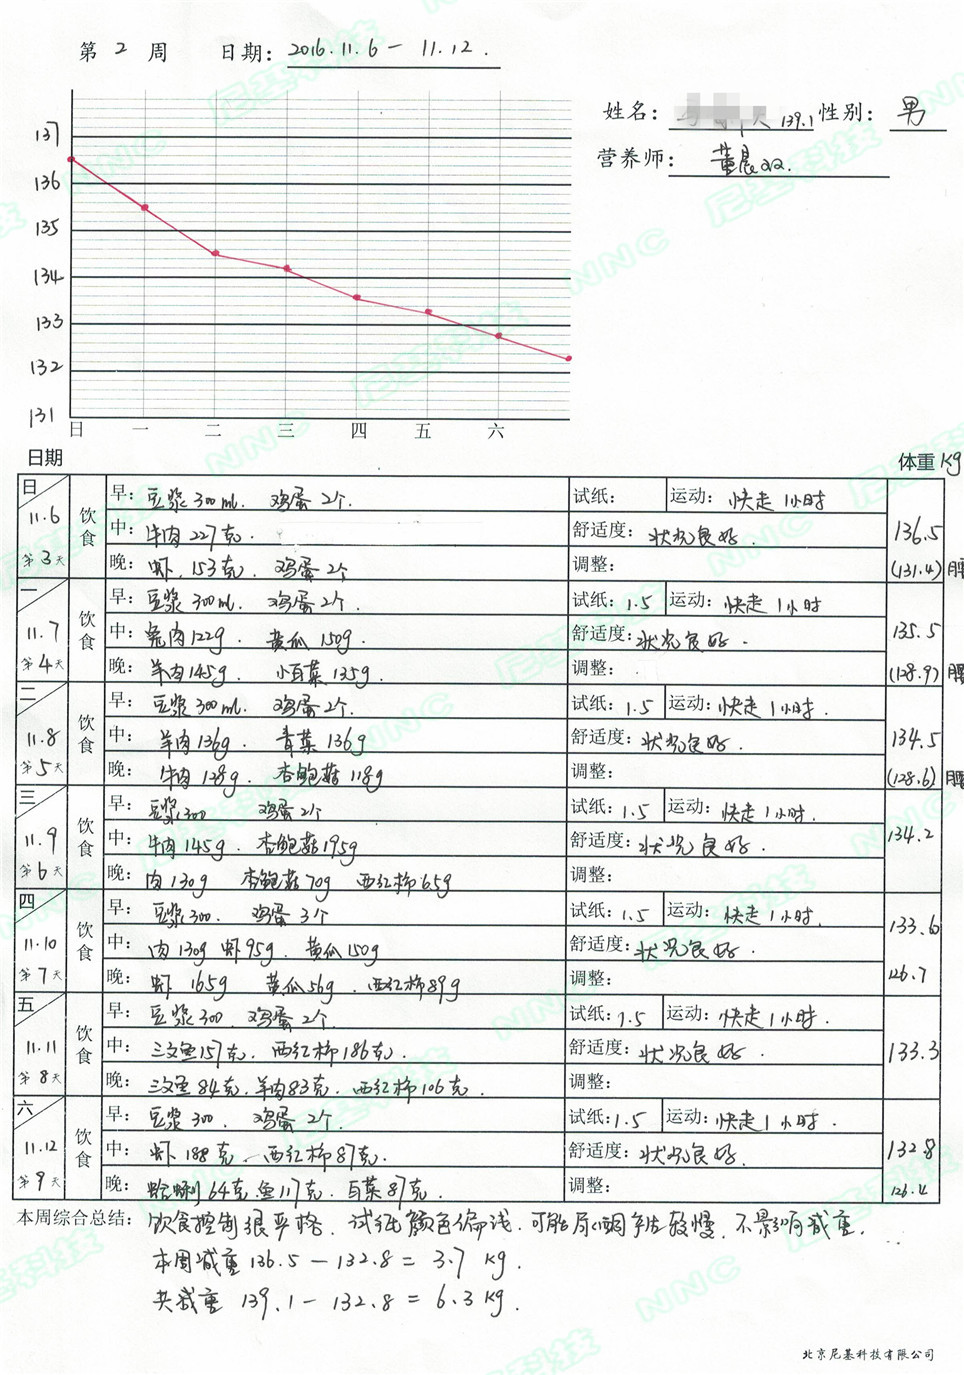 第 2 周 日期: 2016.11.6 — 11.12.
姓名: 139.1 性别: 男
营养师:
137
136
135
134
133
132
131
日 一 二 三 四 五 六
日期 体重 kg
日 11.6 第3天 饮食
早: 豆浆 300 ml. 鸡蛋 2个. 试纸: 运动: 快走 1小时
中: 牛肉 227克. 舒适度: 状况良好. 136.5
晚: 虾. 153克. 鸡蛋 2个 调整: (131.4) 腰
一 11.7 第4天 饮食
早: 豆浆 300ml. 鸡蛋 2个. 试纸: 1.5 运动: 快走 1小时
中: 兔肉 122g. 黄瓜 150g. 舒适度: 状况良好. 135.5
晚: 羊肉 145g. 小白菜 135g. 调整: (128.9) 腰
二 11.8 第5天 饮食
早: 豆浆 300ml. 鸡蛋 2个. 试纸: 1.5 运动: 快走 1小时.
中: 羊肉 136g. 青菜 136g 舒适度: 状况良好. 134.5
晚: 牛肉 128g. 杏鲍菇 118g 调整: (128.6) 腰
三 11.9 第6天 饮食
早: 豆浆 300 鸡蛋 2个 试纸: 1.5 运动: 快走 1小时.
中: 牛肉 145g. 杏鲍菇 195g 舒适度: 状况良好. 134.2
晚: 肉 130g 杏鲍菇 70g 西红柿 65g 调整:
四 11.10 第7天 饮食
早: 豆浆 300. 鸡蛋 3个 试纸: 1.5 运动: 快走 1小时.
中: 肉 130g 虾 95g. 黄瓜 150g 舒适度: 状况良好. 133.6
晚: 虾 165g 黄瓜 56g. 西红柿 89g 调整: 126.7
五 11.11 第8天 饮食
早: 豆浆 300. 鸡蛋 2个. 试纸: 1.5 运动: 快走 1小时.
中: 三文鱼 157克. 西红柿 186克. 舒适度: 状况良好. 133.3
晚: 三文鱼 84克. 羊肉 83克. 西红柿 106克. 调整:
六 11.12 第9天 饮食
早: 豆浆 300. 鸡蛋 2个. 试纸: 1.5 运动: 快走 1小时.
中: 虾 188克. 西红柿 87克. 舒适度: 状况良好. 132.8
晚: 蛤蜊 64克. 鱼 117克. 白菜 87克. 调整: 126.4
本周综合总结: 饮食控制很严格. 试纸颜色偏浅. 可能尿酮产生较慢. 不影响减重. ...
本周减重 136.5 — 132.8 = 3.7 kg.
共减重 139.1 — 132.8 = 6.3 kg.
北京尼基科技有限公司
尼基科技 NNC